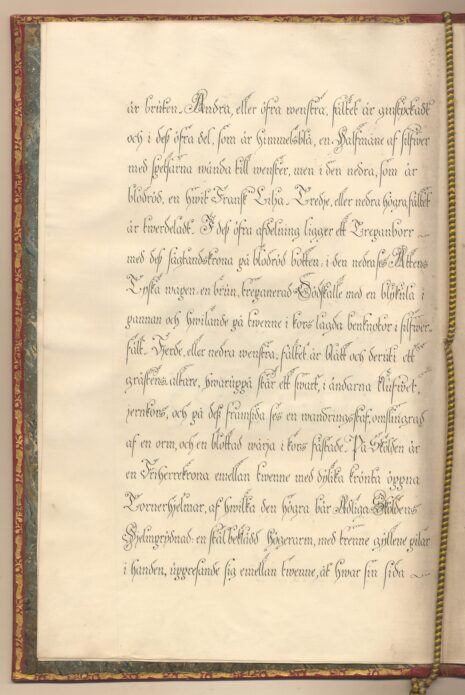 är bruten. Andra, eller öfra wenstra, fältet är genstyckadt
och i deß öfra del, som är himmelsblå, en Halfmåne af silfwer
med spetsarna wända till wenster, men i den nedra, som är
blodröd, en hwit Fransk Lilja. Tredje, eller nedra högra fältet
är twerdeladt. I deß öfra afdelning ligger ett Trepanborr
med deß säglandskrona på blodröd botten, i den nedra ses Ättens
Tyska wapen: en brun, trepanerad Dödskalle med en blykula i
pannan och hwilande på twenne i kors lagda benknotor i silfwer-
fält. Fjerde, eller nedra wenstra, fältet är blått och deruti ett
gråstens altare, hwaruppå står ett swart, i ändarna klufwet,
jernkors, och på deß framsida ses en wandringsstaf, omslingrad
af en orm, och en blottad wärja i kors fästade. På Skölden är
en Friherrekrona emellan twenne med dylika krönta öppna
Tornerhjelmar, af hwilka den högra bär Adliga Sköldens
Hjelmprydnad: en stålbeklädd högerarm, med trenne gyllene pilar
i handen, uppresande sig emellan twenne, åt hwar sin sida